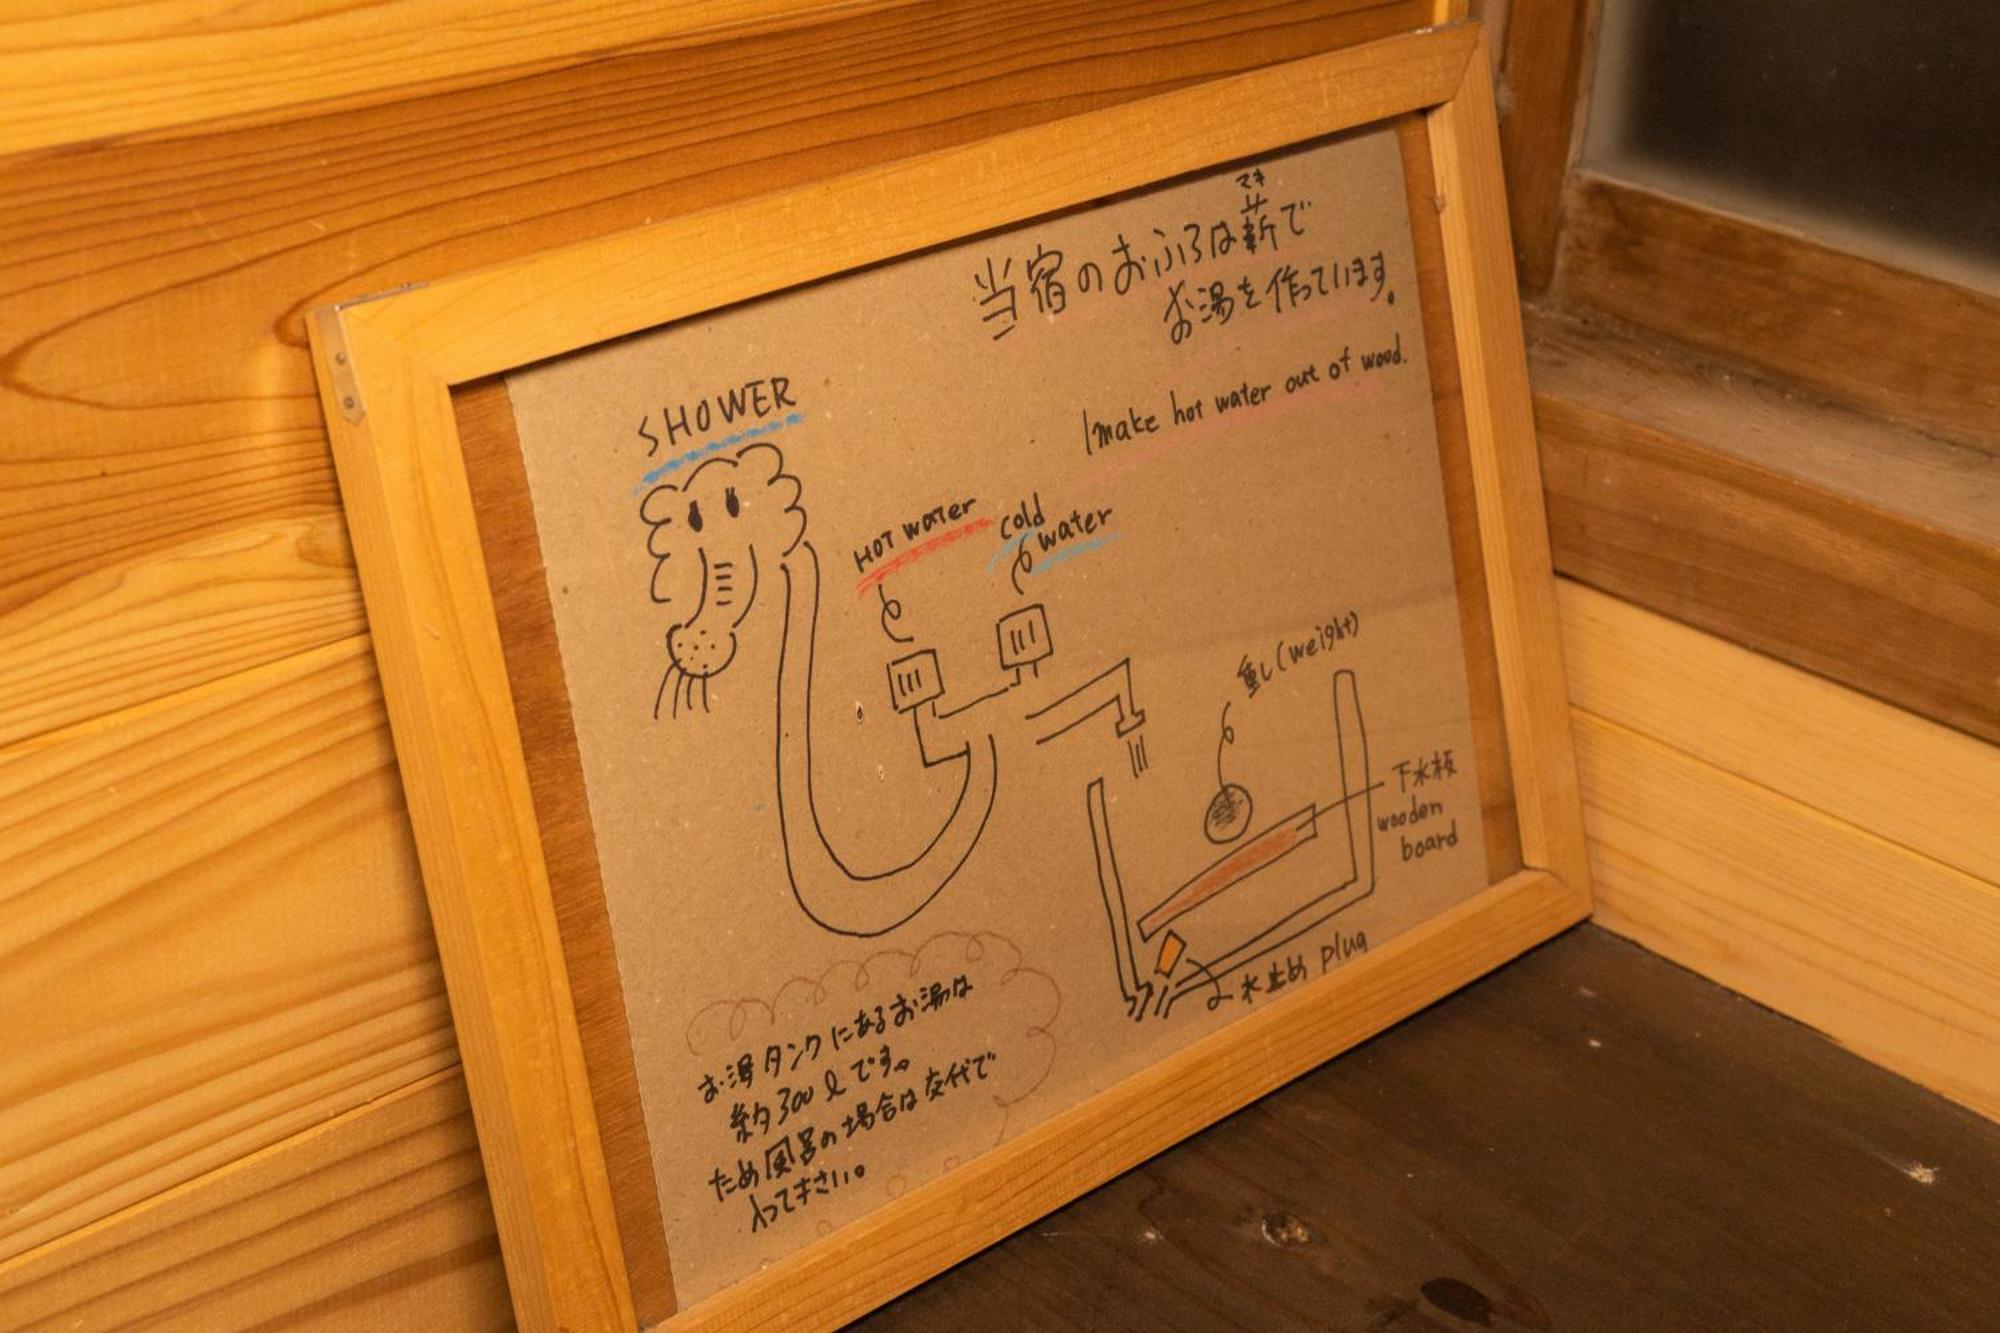 マキ
当宿のおふろは薪で
お湯を作っています。
I make hot water out of wood.
SHOWER
HOT water
cold
water
重し(weight)
下水板
wooden
board
水止め plug
お湯タンクにあるお湯は
約300ℓです。
ため風呂の場合は交代で
入って下さい。